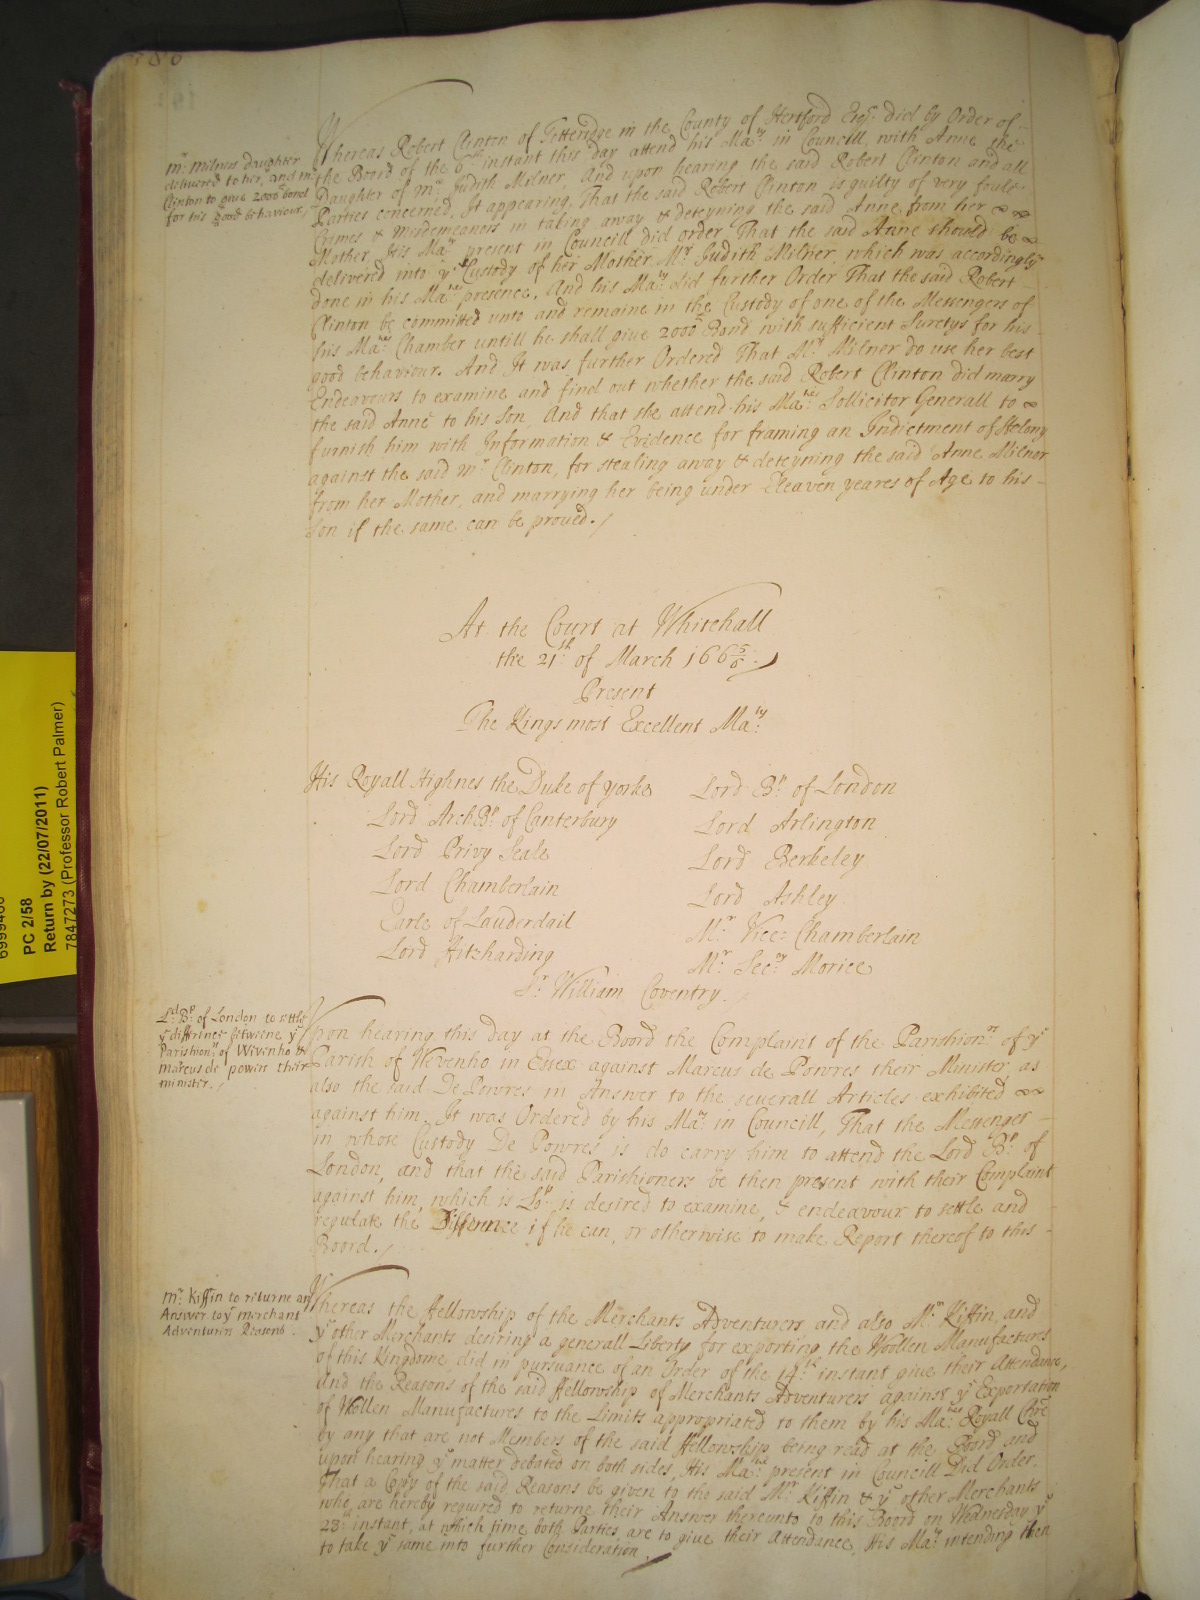 Mr. Milners Daughter
delivered to her, and mr.
Clinton to give 2000l bond
for his good behaviour,
Whereas Robert Clinton of Totteridge in the County of Hertford Esqr. did by Order of
the Board of the 6th instant this day attend his Maty. in Councill, with Anne the
Daughter of mrs Judith Milner, And upon hearing the said Robert Clinton and all
Parties concerned, It appearing, That the said Robert Clinton is guilty of very foule
Crimes & Misdemeanors in taking away & deteyning the said Anne from her
Mother, His Maty. present in Councill did order That the said Anne should be
delivered into ye Custody of her Mother Mrs Judith Milner, which was accordingly
done in his Maties. presence, And his Maty. did further Order That the said Robert
Clinton be committed unto and remaine in the Custody of one of the Messengers of
his Maties. Chamber untill he shall give 2000l Bond with sufficient Suretys for his
good behaviour. And It was further Ordered That Mrs Milner do use her best
Endeavours to examine and find out whether the said Robert Clinton did marry
the said Anne to his Son, And that she attend his Maties. Sollicitor Generall to
furnish him with Information & Evidence for framing an Indictment of Felony
against the said mr Clinton, for stealing away & deteyning the said Anne Milner
from her Mother, and marrying her being under Eleaven yeares of Age to his
Son if the same can be proved./
At the Court at Whitehall
the 21th of March 166 5/6
Present
The Kings most Excellent Maty.
His Royall Highnes the Duke of yorke
Lord ArchBp. of Canterbury
Lord Privy Seale
Lord Chamberlain
Earle of Lauderdail
Lord Fitzharding
Lord Bp. of London
Lord Arlington
Lord Berkeley
Lord Ashley
Mr. Vice: Chamberlain
Mr. Secry Morice
Sr. William Coventry.
Ld. Bp. of London to settle
ye difference betweene ye
Parishionrs of Wivenho &
Marcus de powers their
minister./
Upon hearing this day at the Boord the Complaint of the Parishionrs of ye
Parish of Wivenho in Essex against Marcus de Powres their Minister, as
also the said De Powres in Answer to the severall Articles exhibited
against him, It was Ordered by his Maty. in Councill, That the Messenger
in whose Custody De Powres is do carry him to attend the Lord Bp. of
London, and that the said Parishioners be then present with their Complaint
against him, which is Lop. is desired to examine, & endeavour to settle and
regulate the Difference if he can, or otherwise to make Report thereof to this
Boord./
mr. Kiffin to returne an
Answer to ye merchant
Adventurers Reasons.
Whereas the Fellowship of the Merchants Adventurers and also Mr. Kiffin, and
ye other Merchants desiring a generall Liberty for exporting the Woollen Manufactures
of this Kingdome did in pursuance of an Order of the 14th instant give their Attendance,
And the Reasons of the said Fellowship of Merchants Adventurers against ye Exportation
of Wollen Manufactures to the Limits appropriated to them by his Maties Royall Chre
by any that are not Members of the said Fellowship being read at the Boord and
upon hearing ye matter debated on both sides, His Maty. present in Councill Did Order
That a Copy of the said Reasons be given to the said Mr Kiffin & ye other Merchants
who are hereby required to returne their Answer thereunto to this Board on Wednesday ye
28th instant, at which time both Parties are to give their Attendance, His Maty intending then
to take ye same into further Consideration./
PC 2/58
Return by (22/07/2011)
7847273 (Professor Robert Palmer)